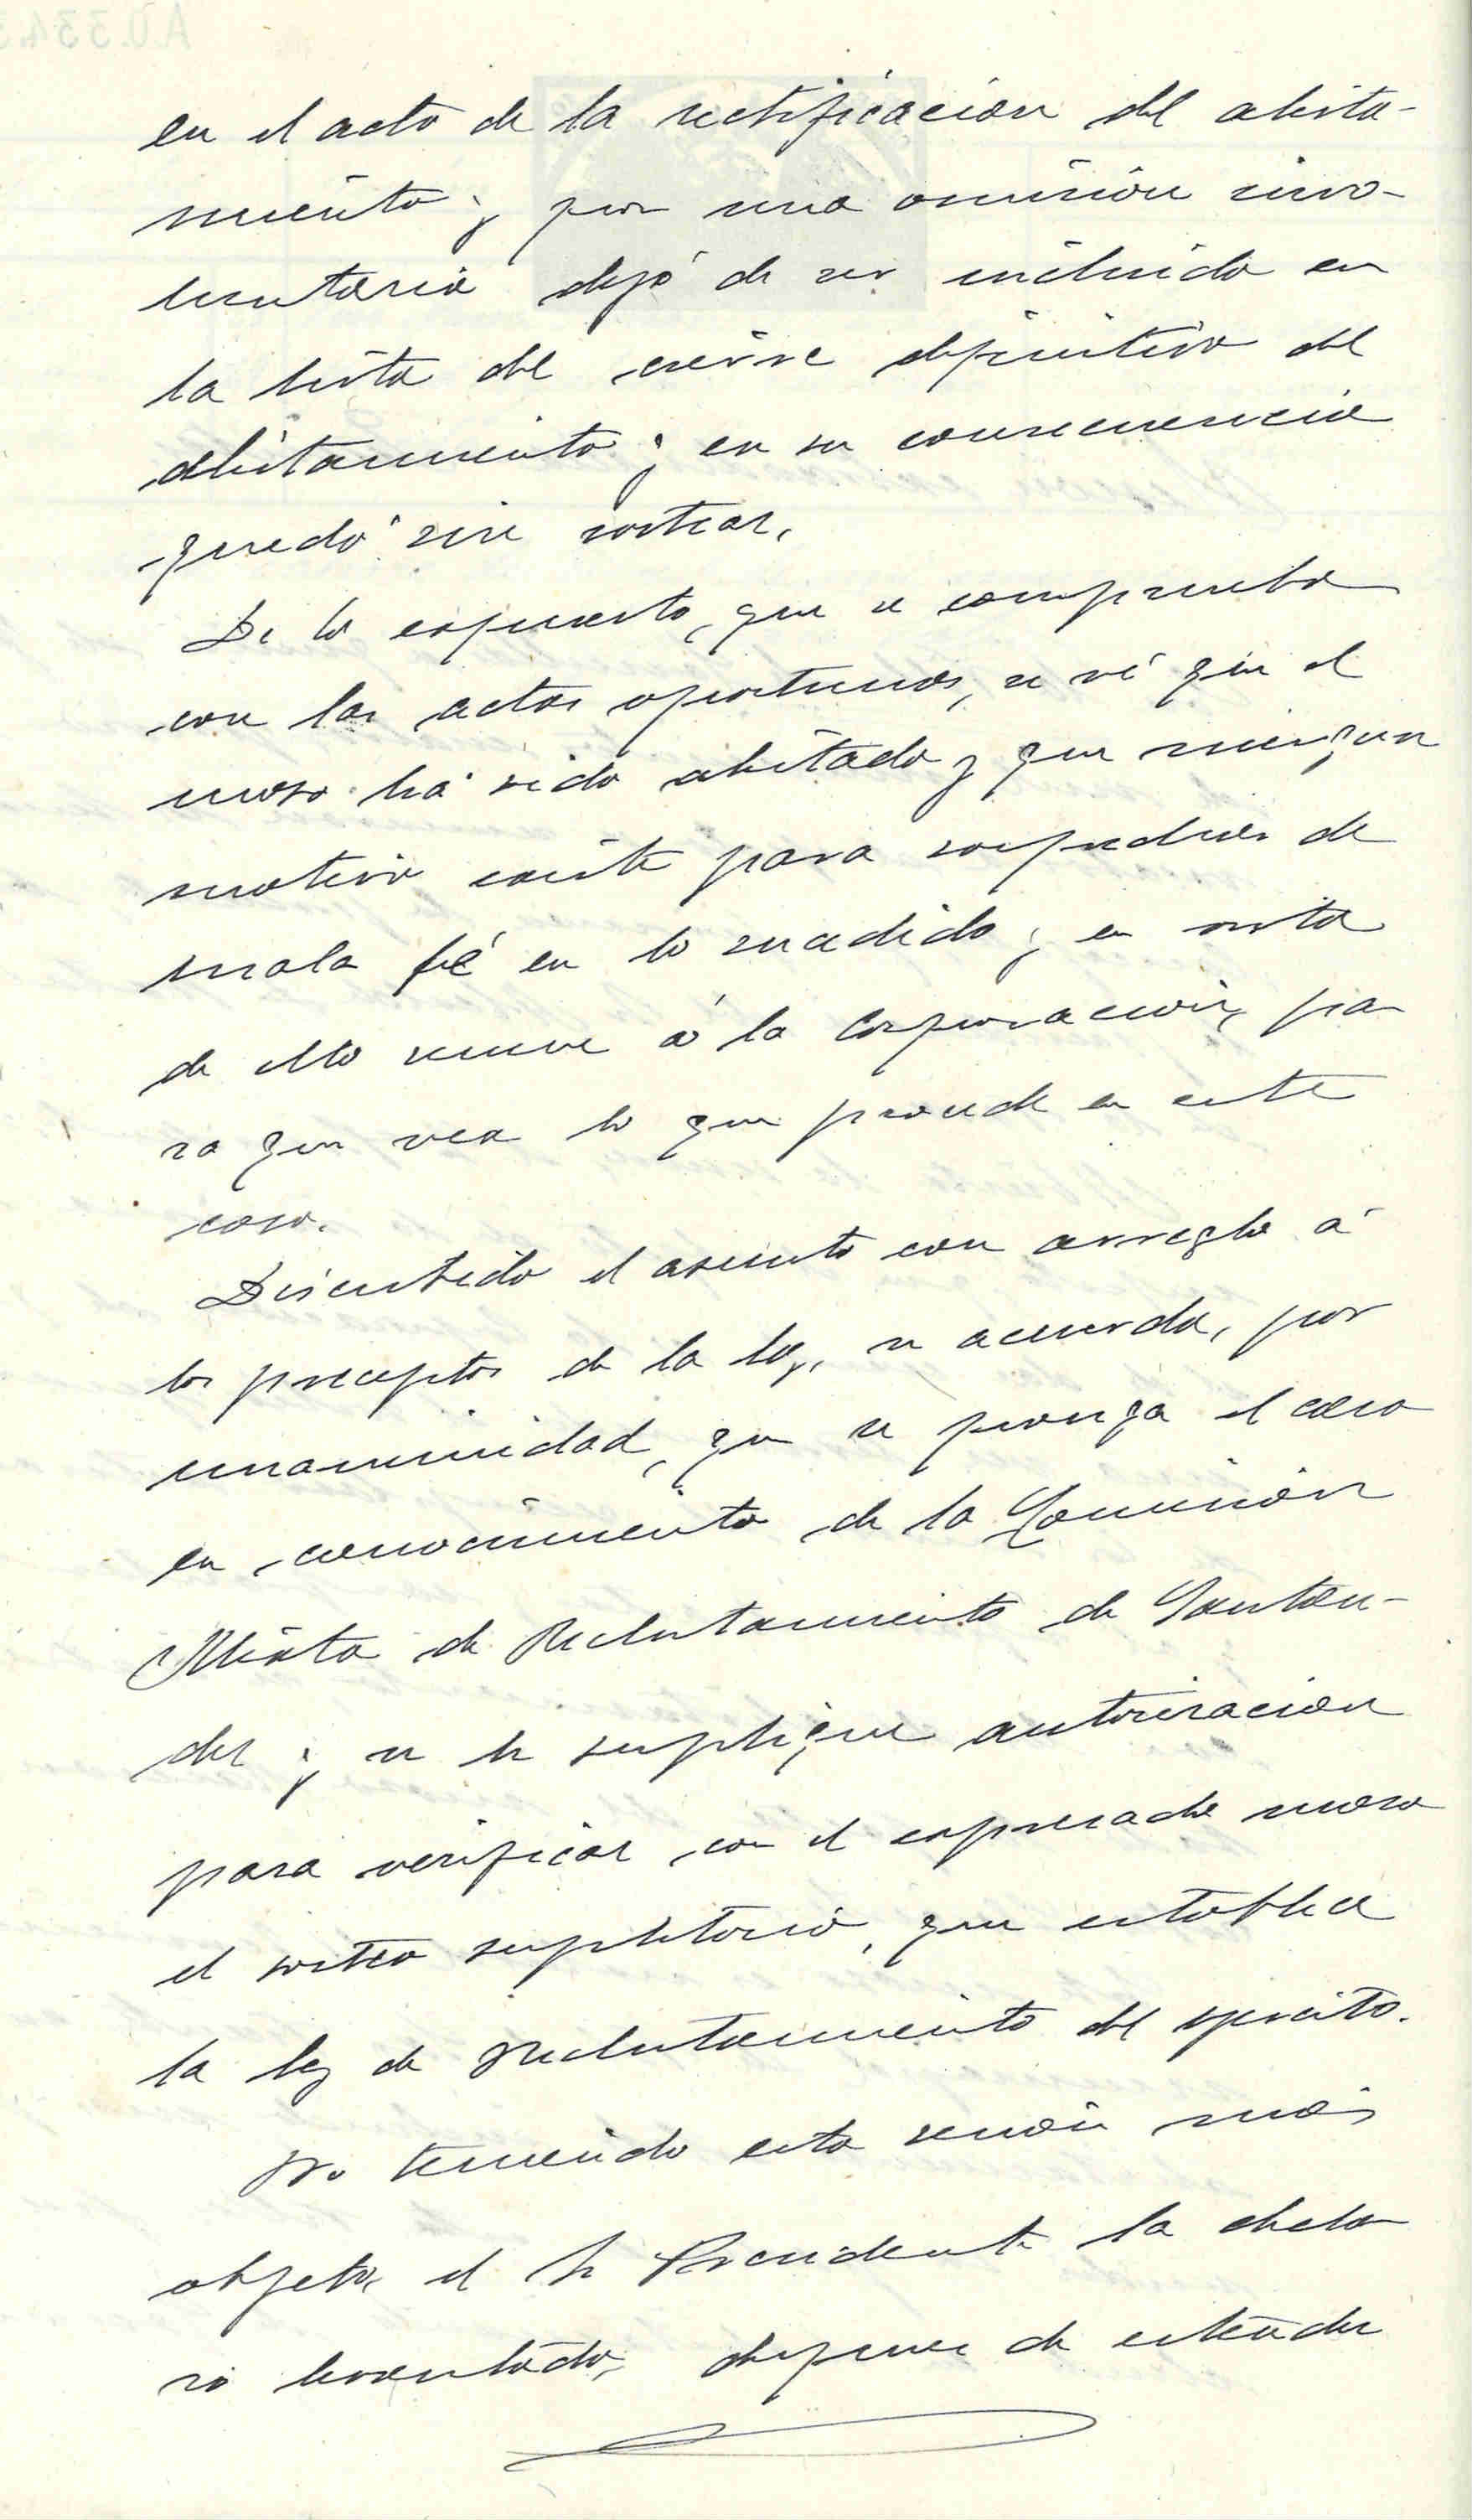 en el acto de la rectificación del alista-
miento; y por una omisión invo-
luntaria dejó de ser incluido en
la lista del cierre definitivo del
alistamiento; y en su consecuencia
quedó sin sortear.
De lo expuesto, que se comprueba
con las actas oportunas, se vé que el
mozo há sido alistado y que ningun
motivo existe para sospechar de
mala fé en lo sucedido; y en vista
de ello reune á la Corporación, pa
ra que vea lo que procede en este
caso.
Discutido el asunto con arreglo á
los preceptos de la ley, se acuerda, por
unanimidad, que se ponga el caso
en conocimiento de la Comisión
Mixta de Reclutamiento de Santan-
der y se le suplique autorizacion
para verificar con el expresado mozo
el sorteo supletorio, que establece
la ley de reclutamiento del ejercito.
No teniendo esta sesión más
objeto, el Sr Presidente la decla
ró levantada, despues de extender